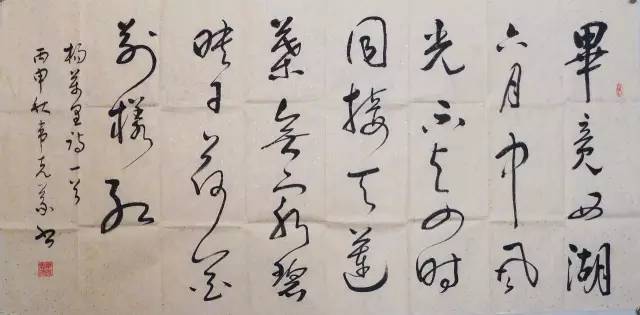 畢竟西湖
六月中風
光不与四时
同接天蓮
葉無窮碧
映日荷花
別樣红
楊萬里詩一首
丙申秋韦克義书